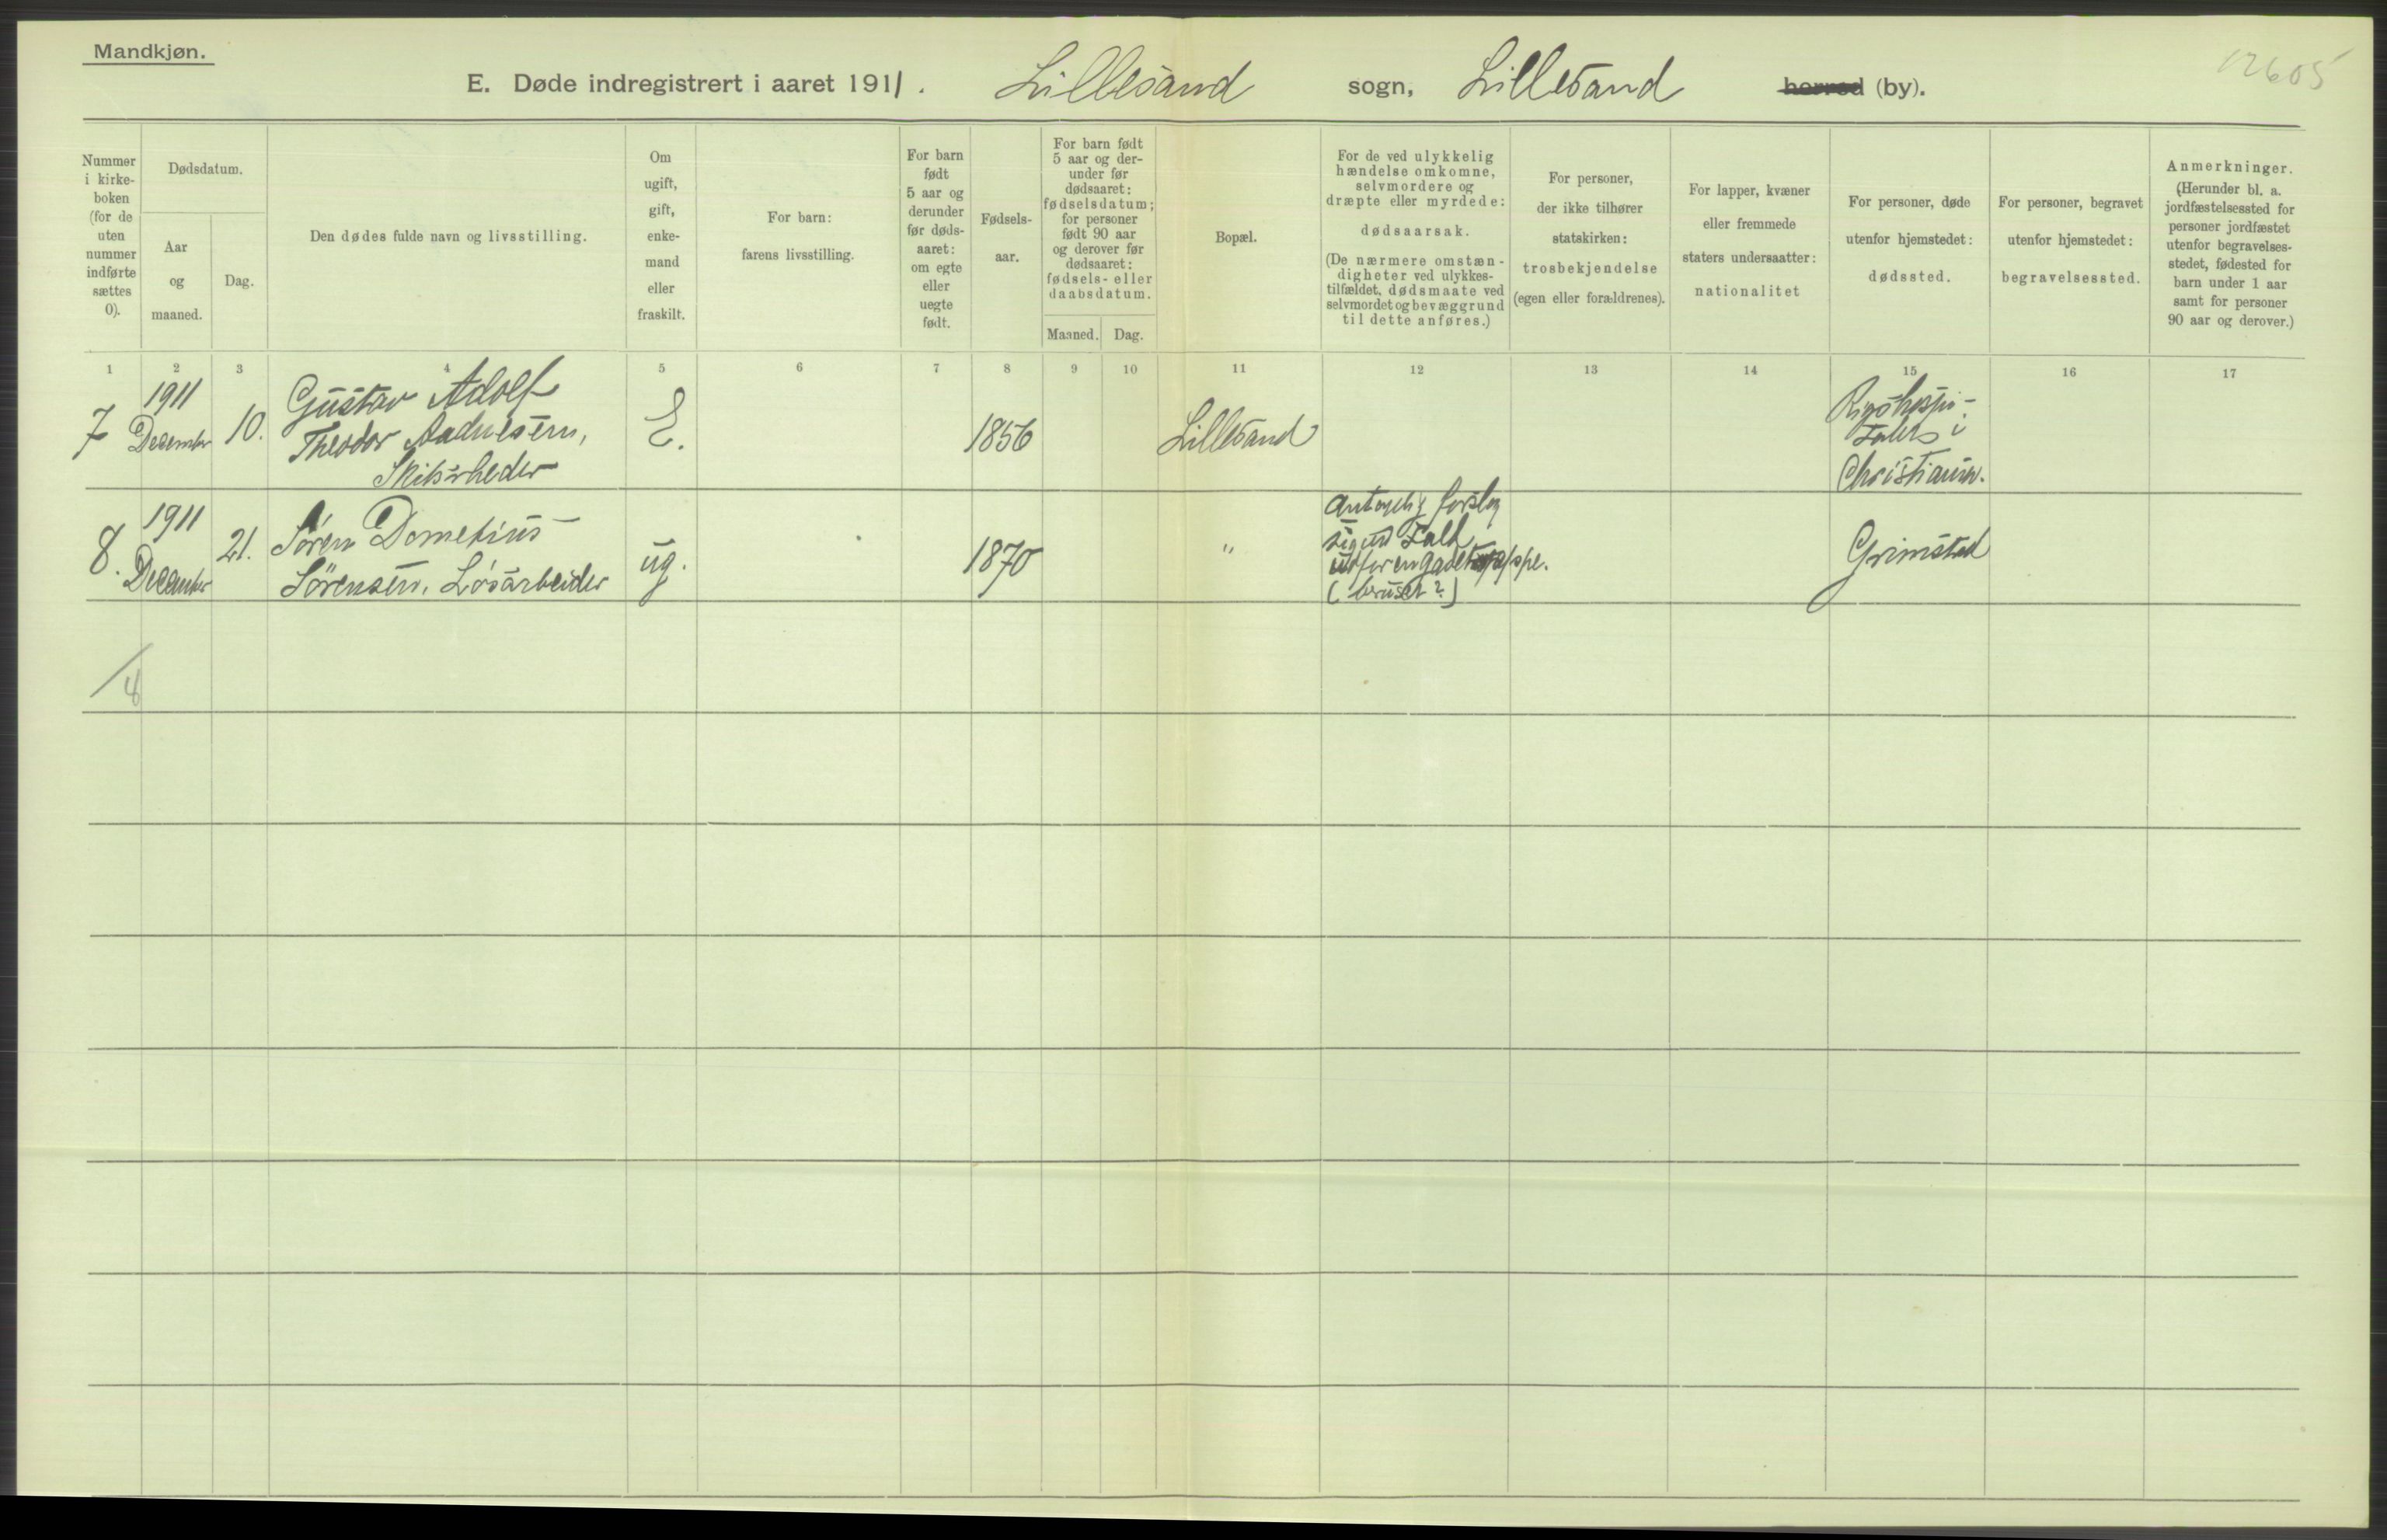 Mandkjøn.
E. Døde indregistrert i aaret 1911. Lillesand sogn, Lillesand herred (by).
12605
Nummer i kirke- boken (for de uten nummer indførte sættes 0).
Dødsdatum.
Aar og maaned.
Dag.
Den dødes fulde navn og livsstilling.
Om ugift, gift, enke- mand eller fraskilt.
For barn: farens livsstilling.
For barn født 5 aar og derunder før døds- aaret: om egte eller uegte født.
Fødsels- aar.
For barn født 5 aar og der- under før dødsaaret: fødselsdatum; for personer født 90 aar og derover før dødsaaret: fødsels- eller daabsdatum.
Maaned. Dag.
Bopæl.
For de ved ulykkelig hændelse omkomne, selvmordere og dræpte eller myrdede: dødsaarsak. (De nærmere omstæn- digheter ved ulykkes- tilfældet, dødsmaate ved selvmordet og bevæggrund til dette anføres.)
For personer, der ikke tilhører statskirken: trosbekjendelse (egen eller forældrenes).
For lapper, kvæner eller fremmede staters undersaatter: nationalitet
For personer, døde utenfor hjemstedet: dødssted.
For personer, begravet utenfor hjemstedet: begravelsessted.
Anmerkninger. (Herunder bl. a. jordfæstelsessted for personer jordfæstet utenfor begravelses- stedet, fødested for barn under 1 aar samt for personer 90 aar og derover.)
1 2 3 4 5 6 7 8 9 10 11 12 13 14 15 16 17
7
1911
December
10.
Gustav Adolf
Theodor
Skibsrheder
E.
1856
Lillesand
Rigshospi-
talet i
Christiania.
8.
1911
December
21.
Søren Dometius
Sörensen, Løsarbeider
ug.
1870
"
Antagelig forslog
sig ved Fald
udfor en
(beruset?)
Grimstad
/4